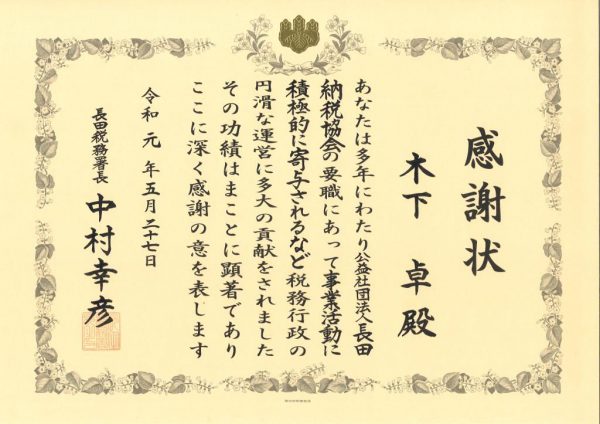 感謝状
木下 卓殿
あなたは多年にわたり公益社団法人長田
納税協会の要職にあって事業活動に
積極的に寄与されるなど税務行政の
円滑な運営に多大の貢献をされました
その功績はまことに顕著であり
ここに深く感謝の意を表します
令和元年五月二十七日
長田税務署長 中村幸彦